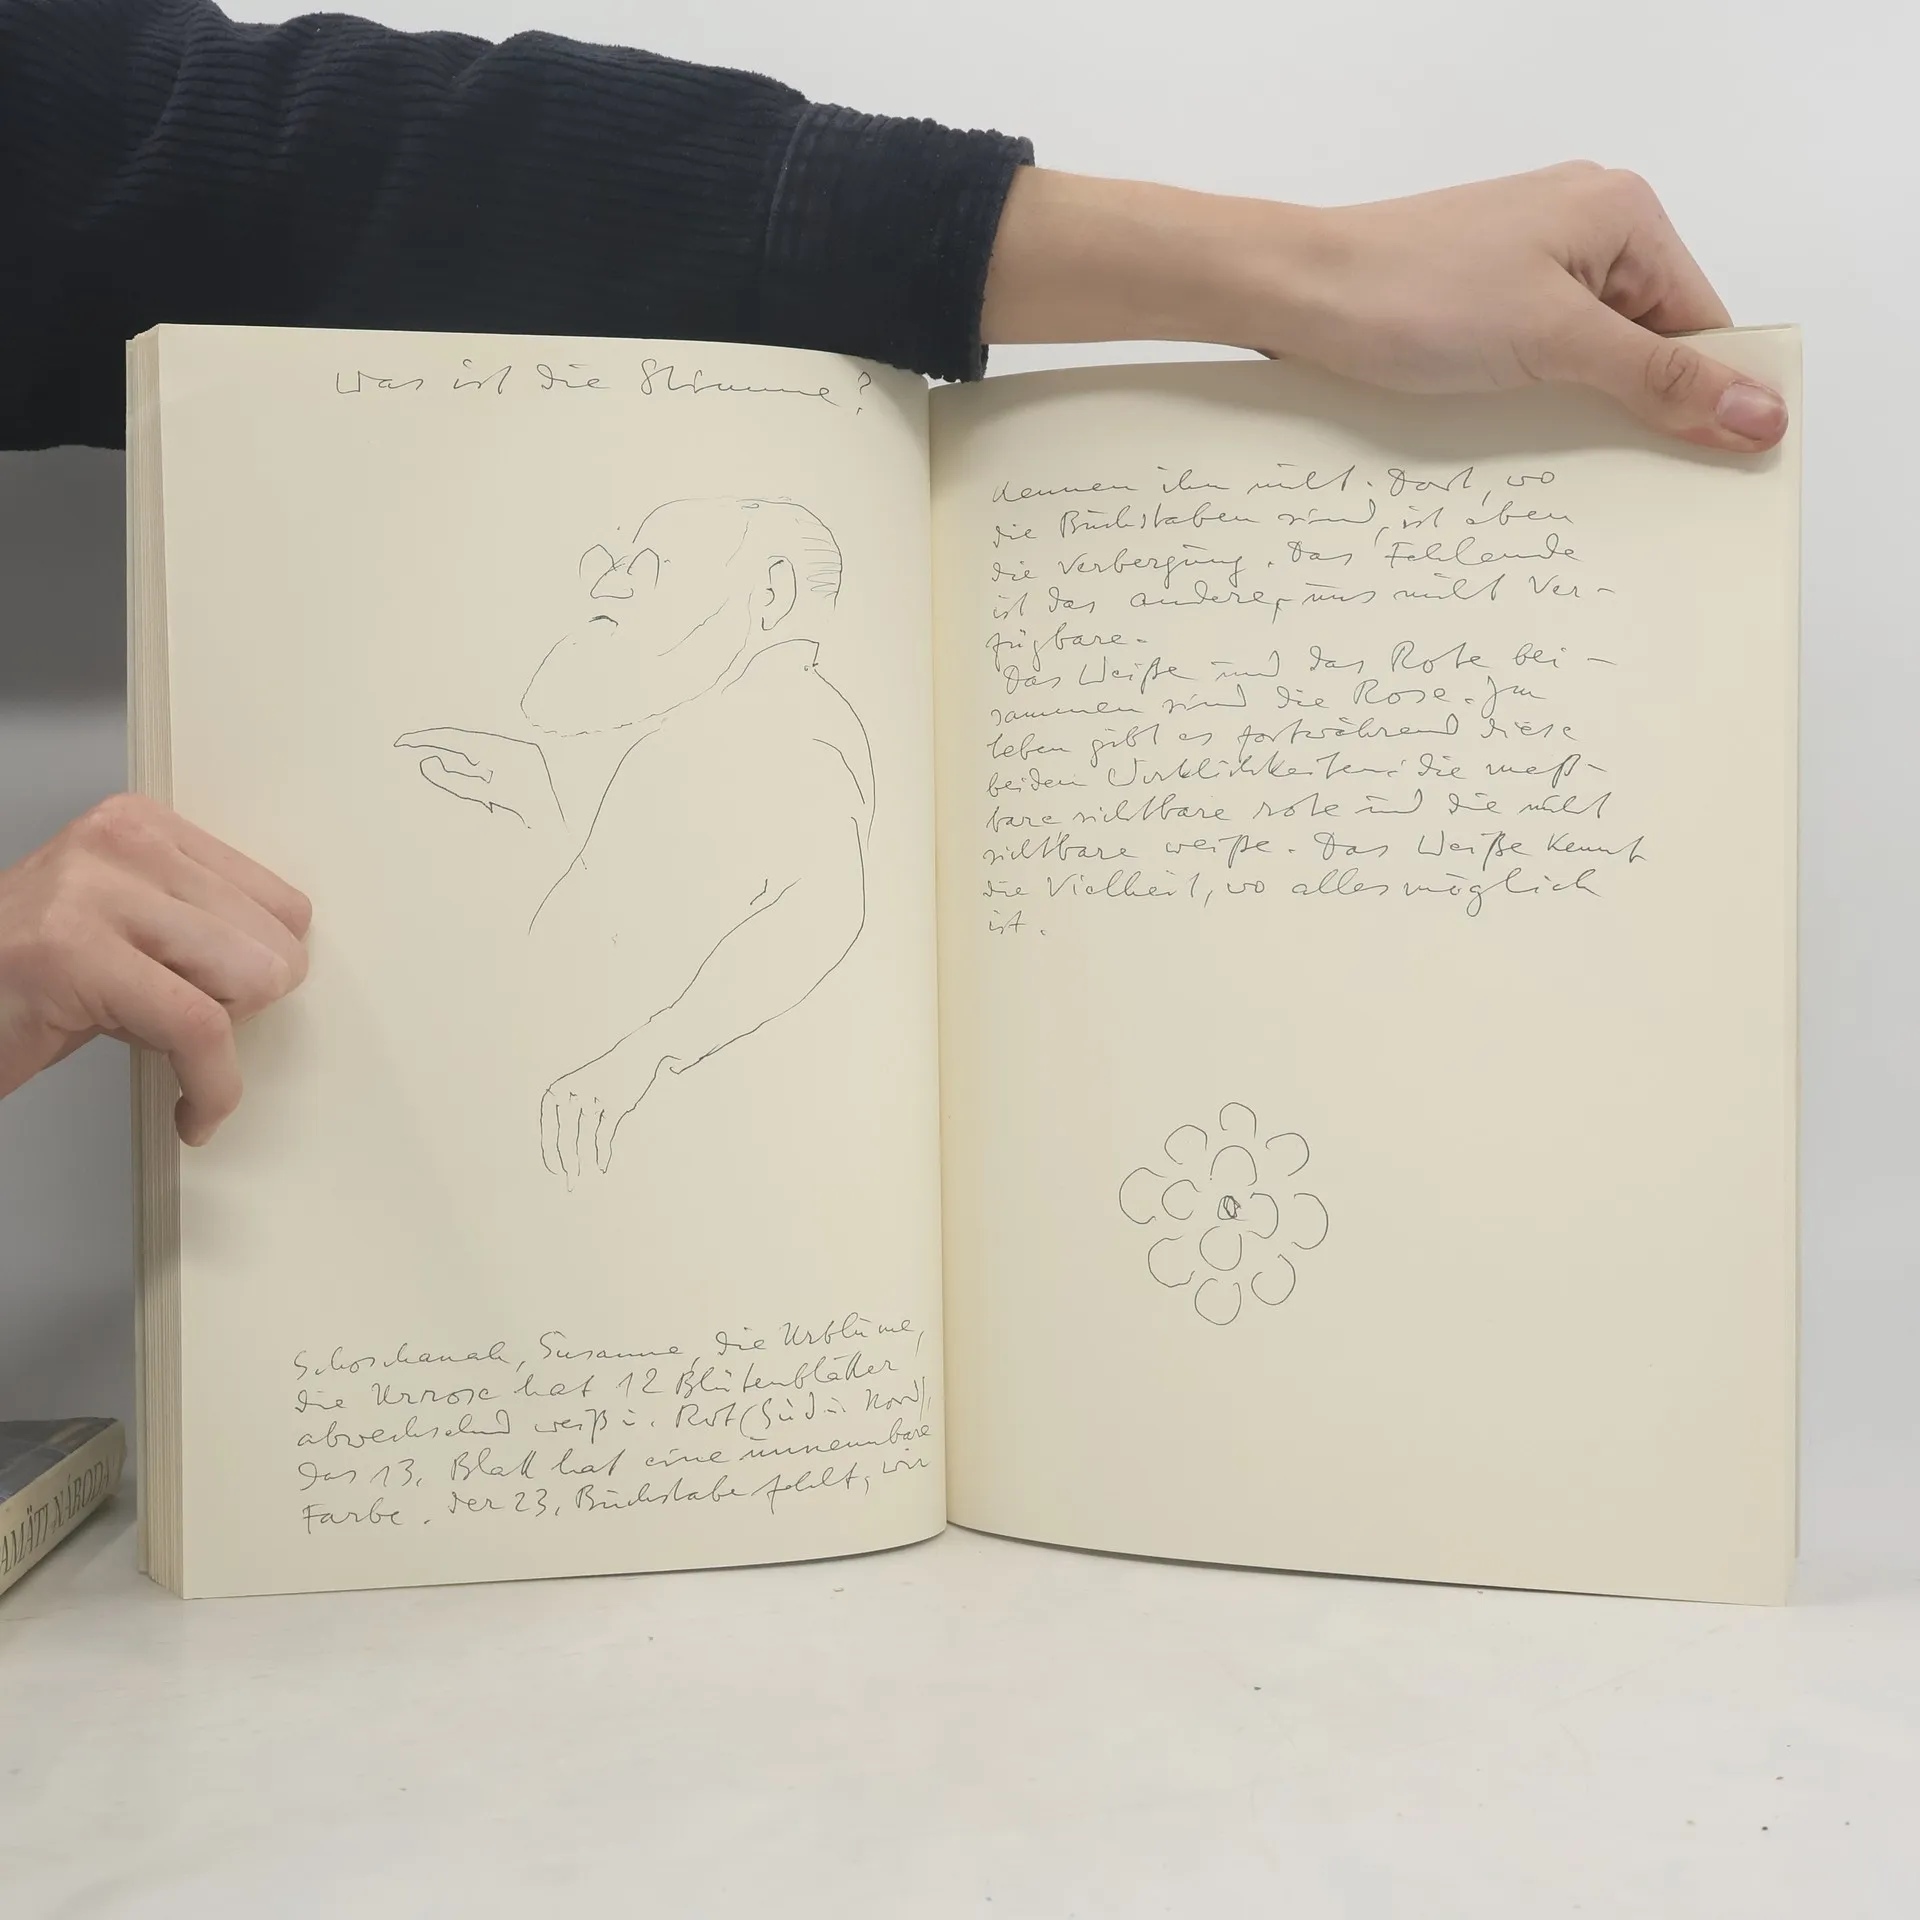 Was ist die Stimme?
Schoschanah, Susanne, die Urblume,
die Urrose hat 12 Blütenblätter
abwechselnd weiß u. Rot (Süd u. Nord).
Das 13. Blatt hat eine unnennbare
Farbe. Der 23. Buchstabe fehlt, wir
kennen ihn nicht. Dort, wo
die Buchstaben sind, ist eben
die Verbergung. Das Fehlende
ist das andere, uns nicht Ver-
fügbare.
Das Weiße und das Rote bei-
sammen sind die Rose. Im
Leben gibt es fortwährend diese
beiden Wirklichkeiten: die meß-
bare sichtbare rote und die nicht
sichtbare weiße. Das Weiße kennt
die Vielheit, wo alles möglich
ist.
AMÄTI NÁRODA